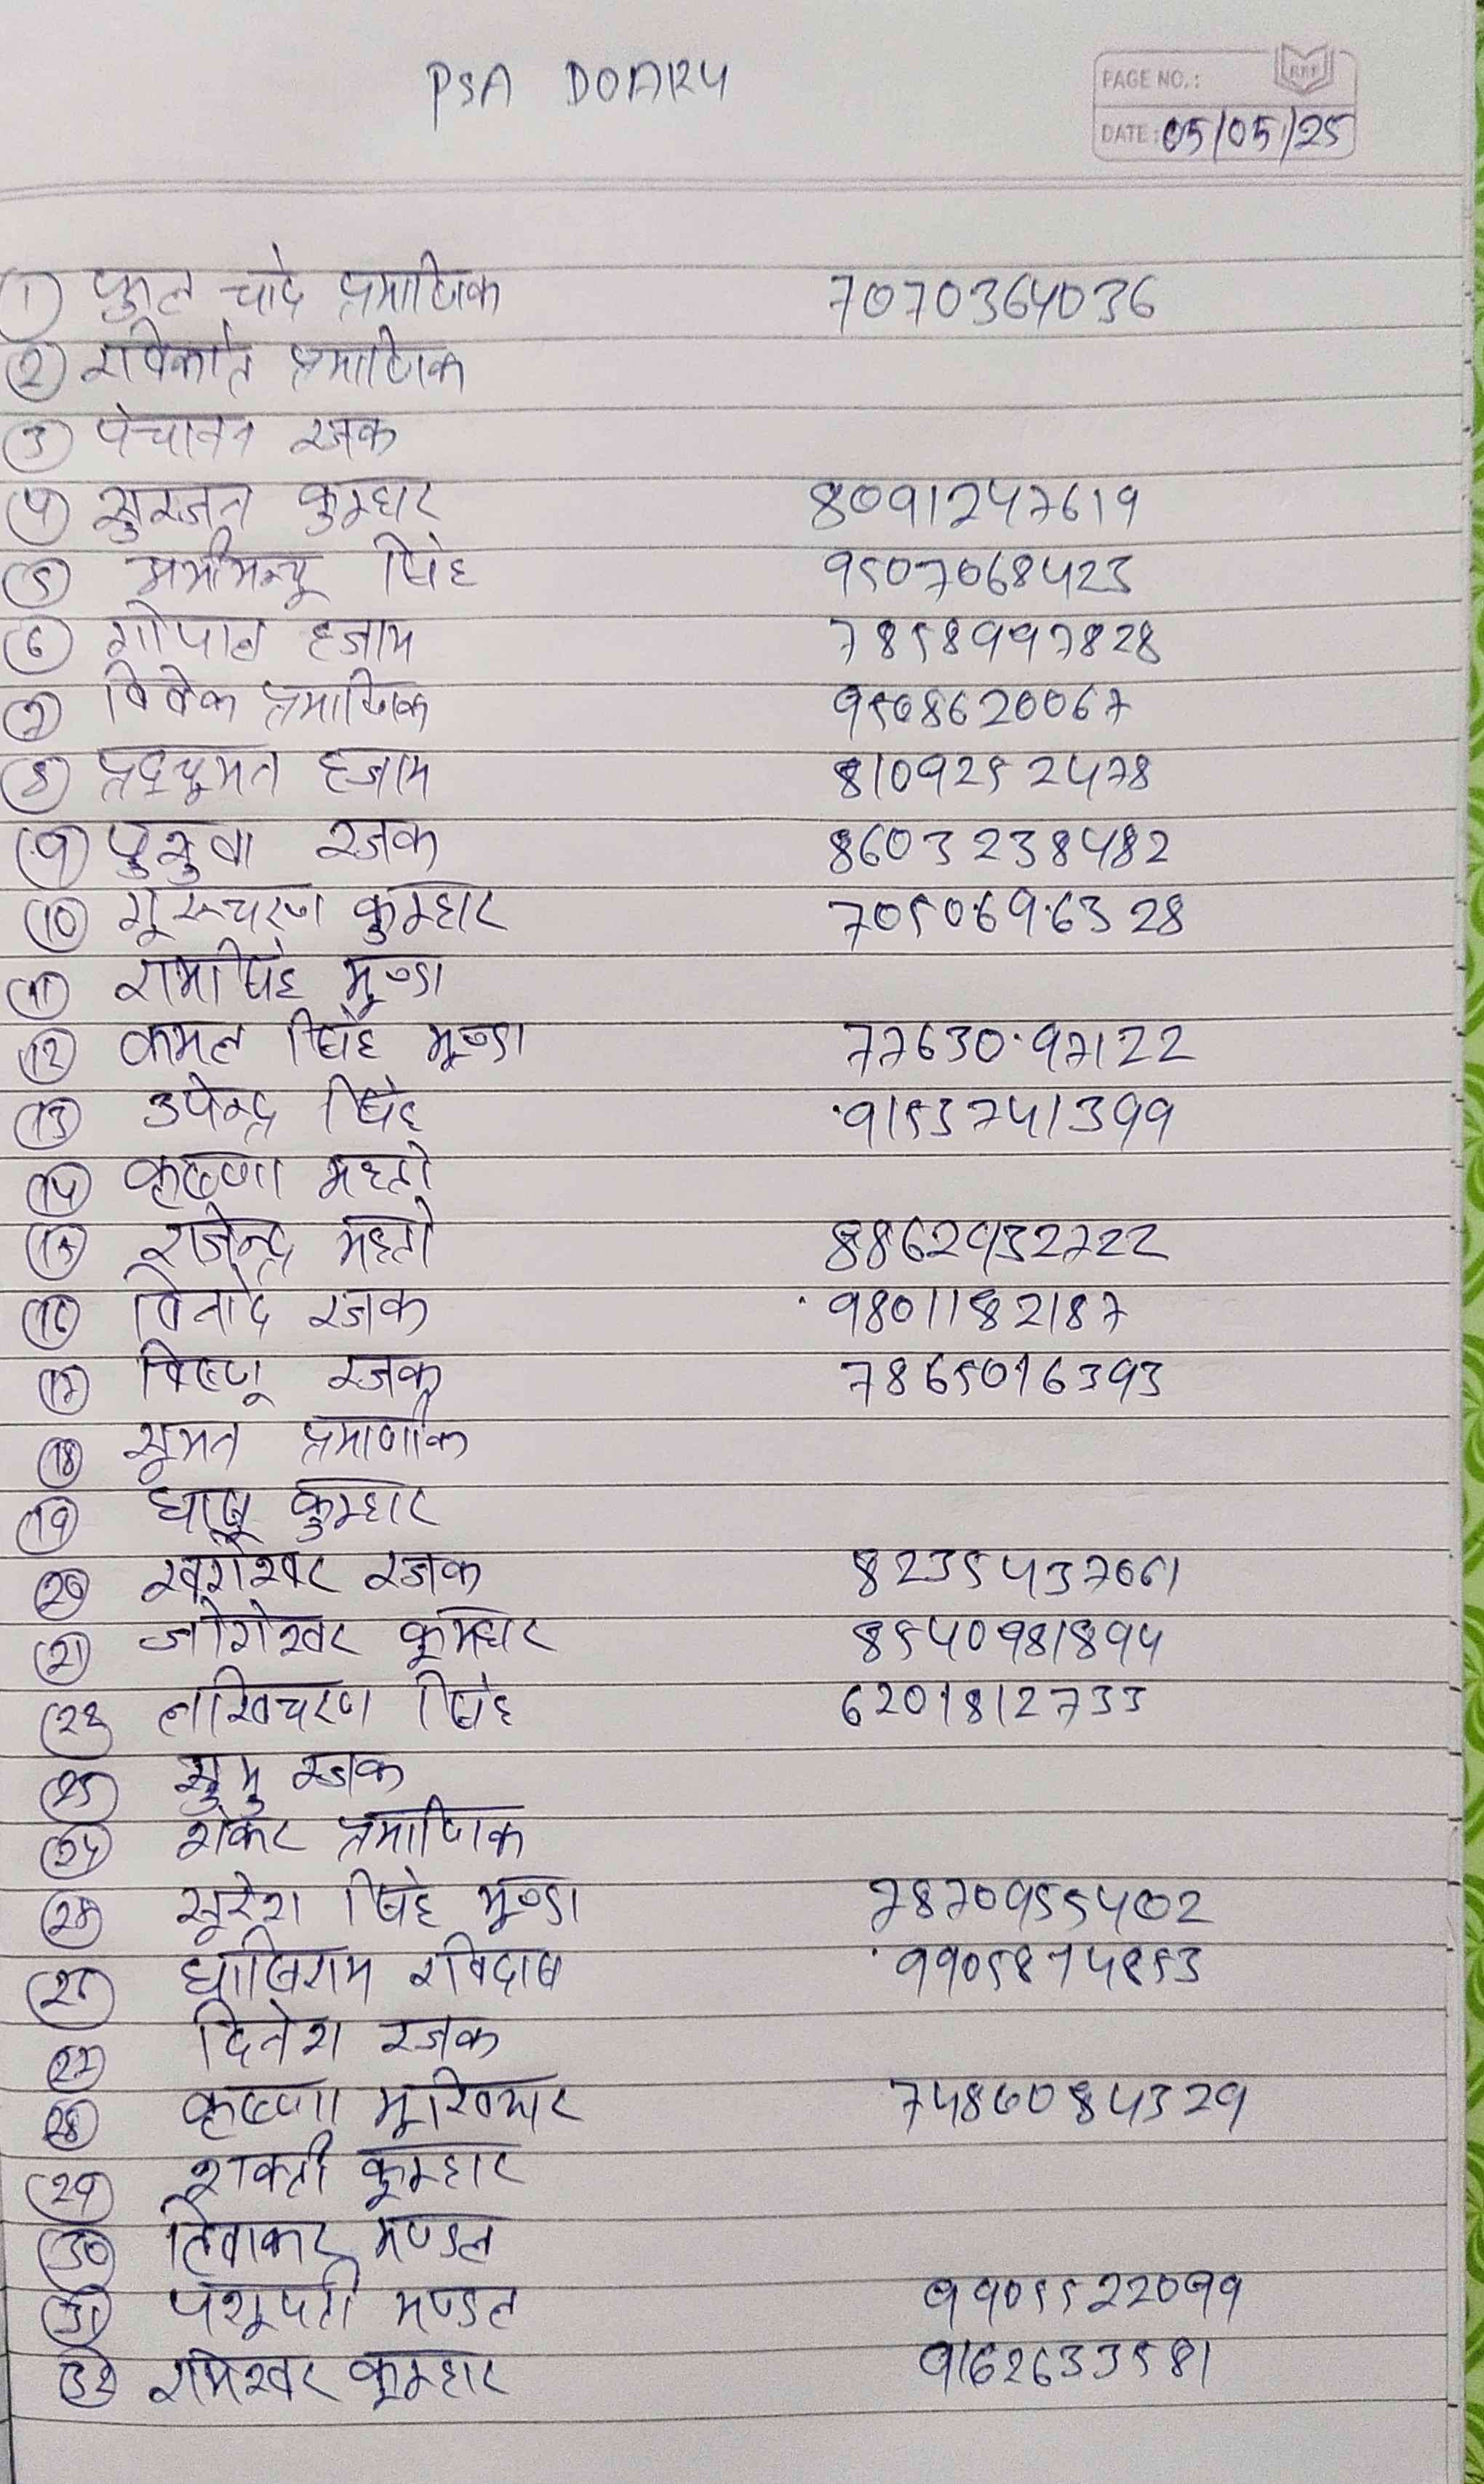 PSA DOARY
PAGE NO.:
DATE: 05/05/25
① फुल चांद प्रमाणिक 7070364036
② रविकांत प्रमाणिक
③ पंचानन रजक
④ सुरजन कुम्हार 8091247619
⑤ अभीमन्यू सिंह 9507068423
⑥ गोपाल हजाम 7858997828
⑦ विवेक प्रमाणिक 9508620067
⑧ प्रद्युमन हजाम 8109252478
⑨ रजक 8603238482
⑩ गूरूचरण कुम्हार 7050696328
⑪ रामसिंह मूण्डा
⑫ कमल सिंह मूण्डा 7763097122
⑬ उपेन्द्र सिंह 9153741399
⑭ कृष्णा महतो
⑮ राजेन्द्र महतो 8862932722
⑯ विनोद रजक 9801182187
⑰ विष्णू रजक 7865016393
⑱ सूमन प्रमाणीक
⑲ घासू कुम्हार
⑳ खगेश्वर रजक 8235437061
㉑ जोगेश्वर कूम्हार 8540981894
लखिचरण सिंह 6201812733
㉓ सुमु रजक
㉔ शंकर प्रमाणिक
㉕ सूरेश सिंह मूण्डा 7870955402
㉖ घासिराम रविदास 9905874853
㉗ दिनेश रजक
㉘ कृष्णा मूखियार 7486084329
㉙ शक्ती कूम्हार
㉚ दिवाकर मण्डल
㉛ पशूपती मण्डल 9905522099
㉜ रामेश्वर कूम्हार 9162633581